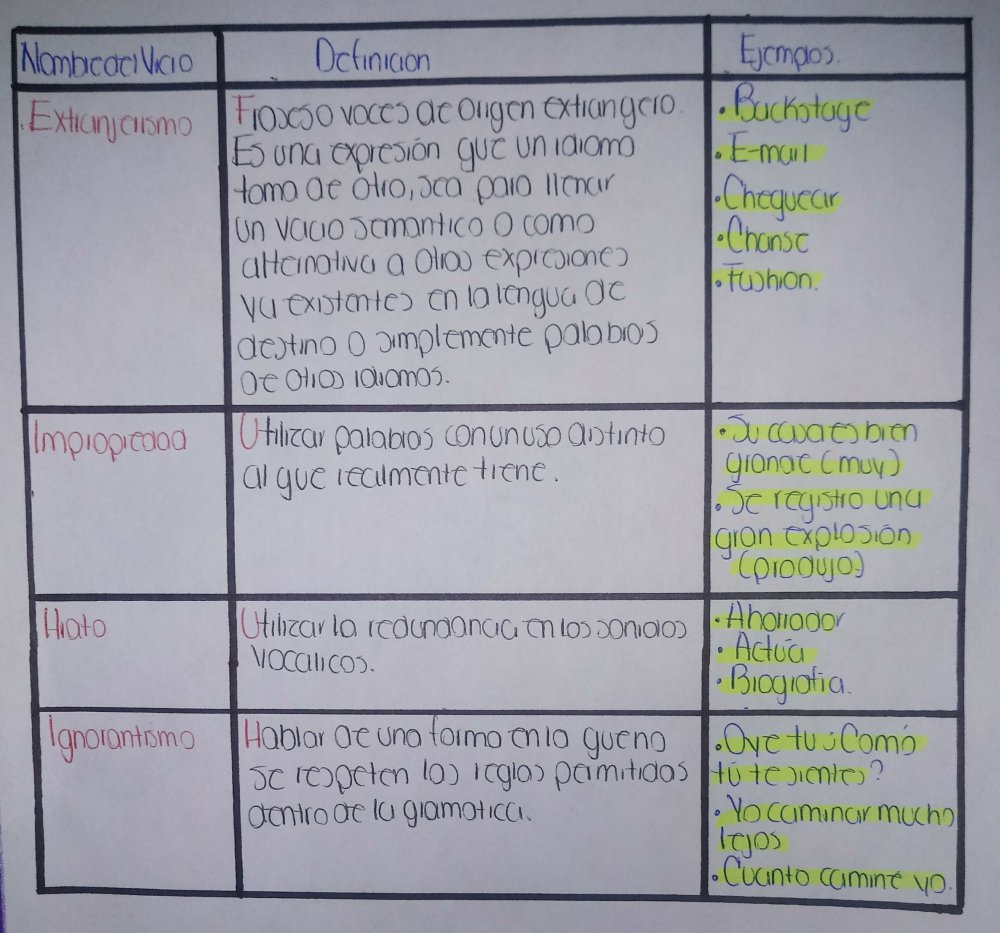 Nombre del Vicio
Definicion
Ejemplos.
Extranjerismo
Fraseso voces de origen extrangero.
Es una expresión que un idioma
toma de otro, sea para llenar
un vacio semantico o como
alternativa a otras expresiones
ya existentes en la lengua de
destino o simplemente palabras
de otros idiomas.
• Backstage
• E-mail
• Chequear
• Chanse
• Fashion.
Impropiedad
Utilizar palabras con un uso distinto
al que realmente tiene.
• Su casa es bien
grande (muy)
• Se registro una
gran explosión
(produjo)
Hiato
Utilizar la redundancia en los sonidos
vocalicos.
• Ahorrador
• Actúa
• Biografia.
Ignorantismo
Hablar de una forma en la que no
se respeten las reglas permitidas
dentro de la gramatica.
• Oye tu ¿Como
tú te sientes?
• Yo caminar mucho
lejos
• Cuanto camine yo.